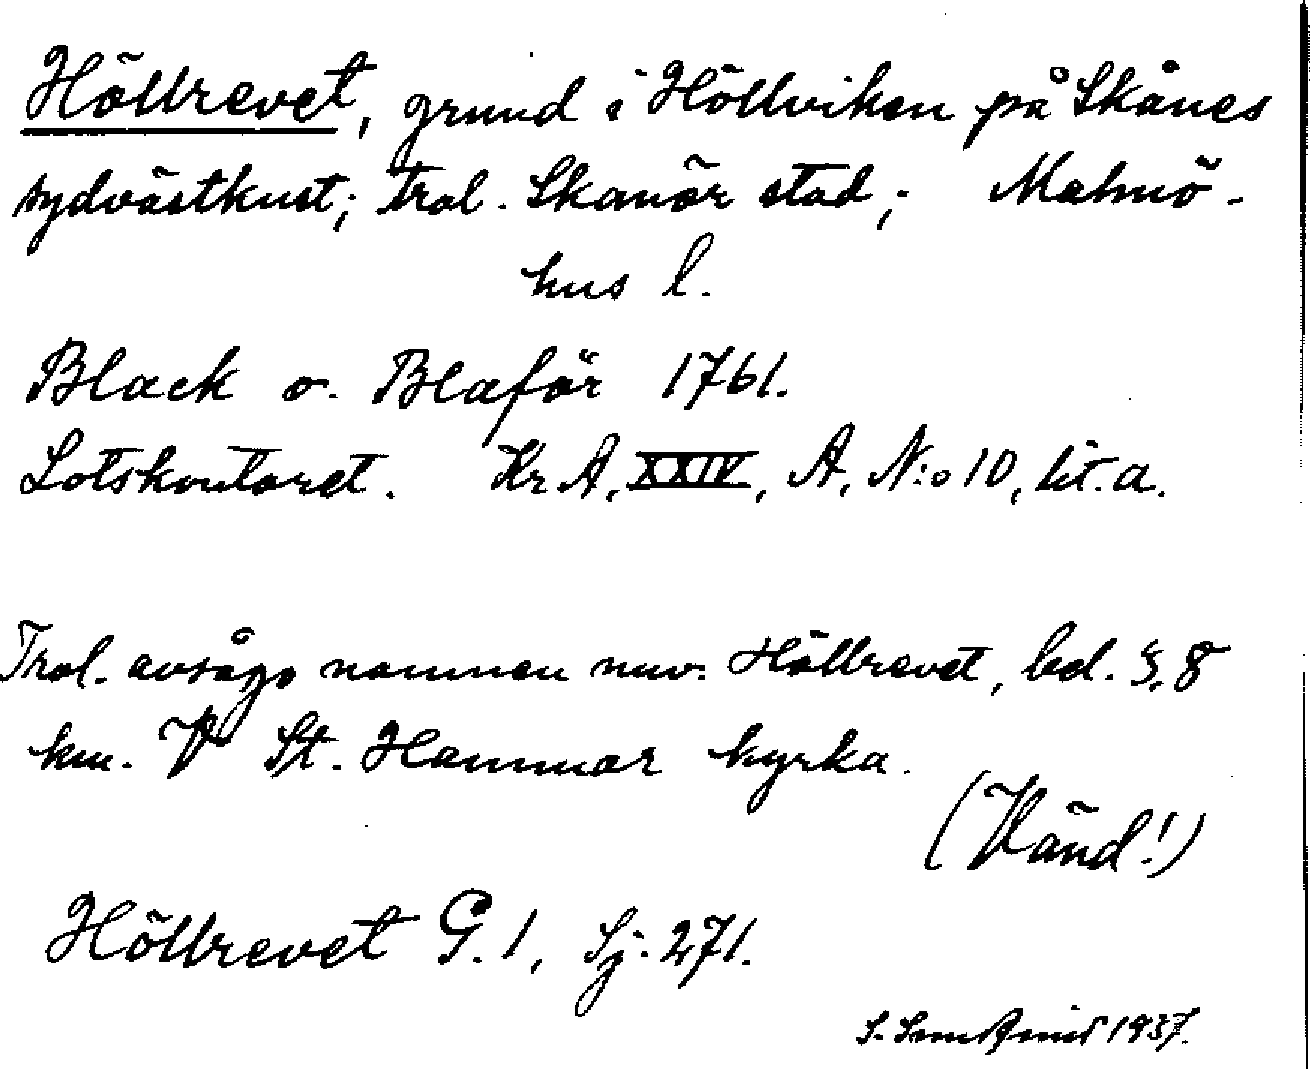 Höllrevet, grund i Höllviken på Skånes
sydvästkust; trol. Skanör stad; Malmö-
hus l.
Black o. Blaför 1761.
Lotskontoret. Kr A, XXIV, A, N:o 10, lit. a.
Trol. avsågo namnen nuv. Höllrevet, bel. 3,8
km. V St. Hammar kyrka.
(Vänd!)
Höllrevet G. 1, Sj. 271.
S. 1937.